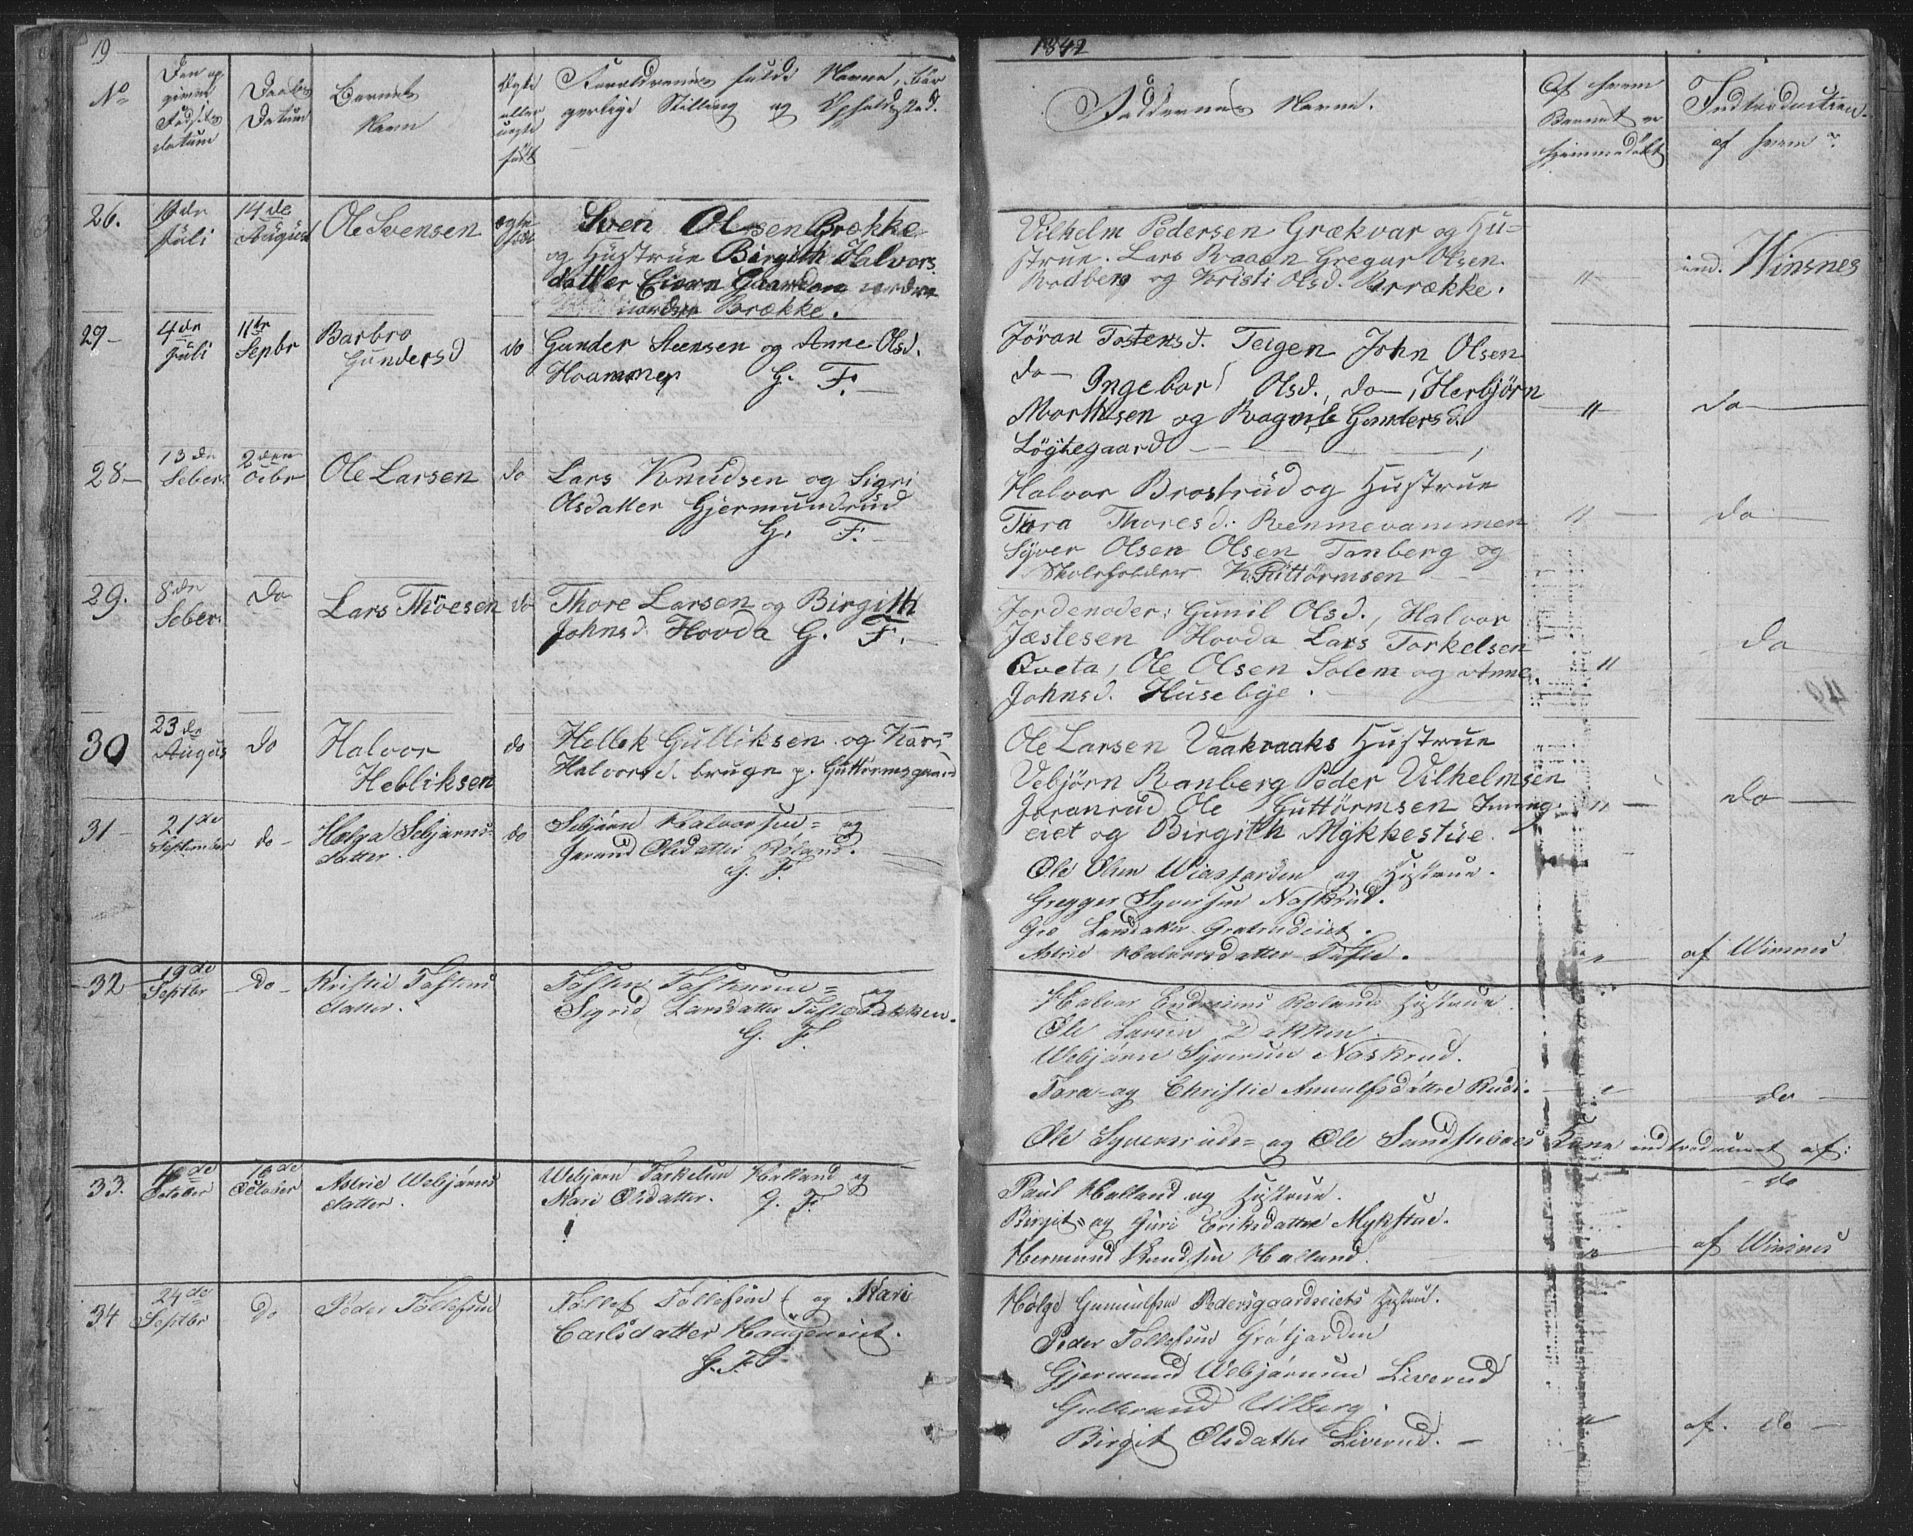 19
No
Den op
givne
Fødsels
datum
Daabs
Datum
Barnets
Navn
Egte
eller
uegte
født
Foreldrenes fulde Navne, bor
gerlige Stilling og Opholdssted.
26.
Juli
14 de
August
Ole Svensen
egte
Sven Olsen Brække
og Hustrue Birgith Halvors
datter Eiern Gaarden nordre
nordre Brække.
27 -
4 de
Juli
11te
Sepbr
Barbro
Gundersd
do
Gunder Steensen og Anne Olsd.
Hoammer G. F. -
28 -
13 de
Seber.
2 den
Ocbr
Ole Larsen
do
Lars Knudsen og Sigri
Olsdatter Gjermundrud
G. F. -
29.
8 de
Seber.
Do
Lars Thoesen
do
Thore Larsen og Birgith
Johnsd. Hovda G. F. -
30
23 de
Augus
do
Halvor
Hebliksen
do
Hellek Gulliksen og Kari
Halvorsd. bruge p. Guttormsgaard
31 -
21 de
September
do -
Helga Sebjørns
datter.
do
Sebjørn Halvorsen = og
Jorand Olsdatter Røland.
G. F.
32
19 de
Septbr
do -
Kristie Tostens
datter.
Tosten Tostensen = og
Sigrid Larsdatter Tuftebakken.
G. F.
33.
October
16 de
October
Astrie Webjørns
datter.
Webjørn Torkelsen Halland og
Mari Olsdatter. G. F.
34
24 de
Septbr
do
Peder Tollefsen
Tollef Tollefsen og Mari
Carlsdatter Haugeneiet.
G. F.
1842
Faddernes Navne.
Af hvem
Barnet er
hjemmedøbt
Introduction
af hvem?
Vilhelm Pedersen Grækvar og Hu=
strue. Lars Raaen Gregar Olsen
Rodberg og Kristi Olsd. Brække.
"
ind. Winsnes
Jøran Tostensd. Teigen John Olsen
do - Ingebor Olsd. do - Herbjørn
Morthisen og Ragnile Gundersd.
Løgtegaard
"
do
Halvor Brostrud og Hustrue
Tora Thoresd. Renmevammen
Syver Olsen Olsen Tanberg og
Skoleholder K. Guttormsen
"
do
Jordemoder: Gunil Olsd., Halvor
Jæstesen Hovda Lars Torkelsen
Qveta, Ole Olsen Solem og Anne
Johnsd. Husebye.
"
do
Ole Larsen Vaakraaks Hustrue
Vebjørn Ranberg Peder Vilhelmsen
Joranrud Ole Guttormsen
eiet og Birgith Mykkestue.
"
do
Ole Olsen og Hustrue.
Gregger Syversen Naskrud.
Gro Larsdatter Gratrudeiet.
Astrie Halvorsdatter Tufte.
"
af Winsnes
Halvor Endresens Rolands Hustrue
Ole Larsen Bakken.
Webjørn Syversen Naskrud.
Tora og Christie Arnulfsdattre Rudi.
"
do
Ole og Ole Sandstebøes Kone introduceret af:
do
Paul Halland og Hustrue.
Birgit = og Guri Eriksdattre Mykstue.
Hermund Knudsen Halland.
"
af Winsnes
Helge Gunnulfsen Pedersgaardseiets Hustrue.
Peder Tollefsen
Gjermund Webjørnsen Liverud
Gulbrand Ulberg.
Birgit Olsdatter Liverud. -
"
af. do -